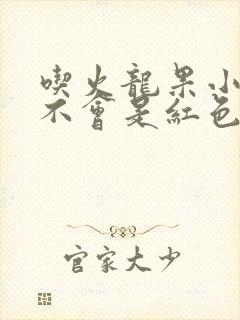 喫火龍果小
不會是紅色
官家大少